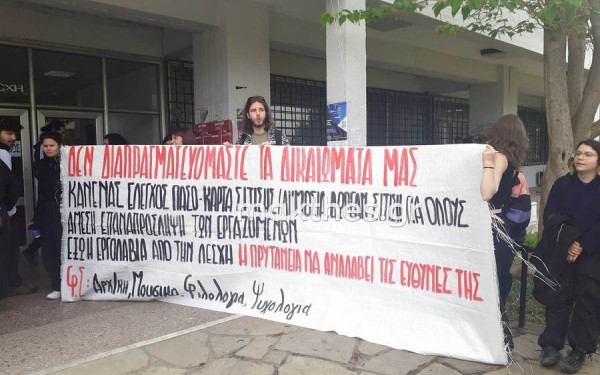 ΣΧΗ
ΔΕΝ ΔΙΑΠΡΑΓΜΑΤΕΥΟΜΑΣΤΕ ΤΑ ΔΙΚΑΙΩΜΑΤΑ ΜΑΣ
ΚΑΝΕΝΑΣ ΕΛΕΓΧΟΣ ΠΑΣΟ-ΚΑΡΤΑ ΣΙΤΙΣΗΣ/ΔΗΜΟΣΙΑ ΔΩΡΕΑΝ ΣΙΤΙΣΗ ΓΙΑ ΟΛΟΥΣ
ΑΜΕΣΗ ΕΠΑΝΑΠΡΟΣΛΗΨΗ ΤΩΝ ΕΡΓΑΖΟΜΕΝΩΝ
ΕΞΩ Η ΕΡΓΟΛΑΒΙΑ ΑΠΟ ΤΗ ΛΕΣΧΗ Η ΠΡΥΤΑΝΕΙΑ ΝΑ ΑΝΑΛΑΒΕΙ ΤΙΣ ΕΥΘΥΝΕΣ ΤΗΣ
ΦΣ: Αρχ/κη, Μουσικό, Φιλολογία, Ψυχολογία